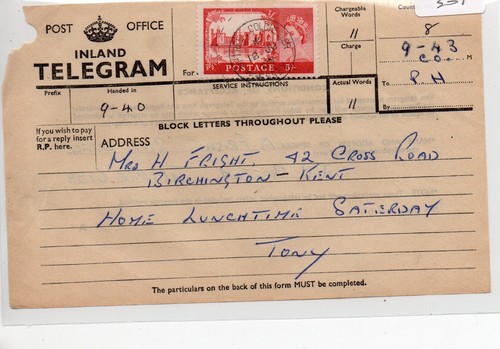 551
POST OFFICE
INLAND
TELEGRAM
For
POSTAGE 5/-
Chargeable Words
11
Charge
Actual Words
11
8
9-43
Co.
M
To
P H
Prefix
Handed in
9-40
SERVICE INSTRUCTIONS
If you wish to pay
for a reply insert
R.P. here.
BLOCK LETTERS THROUGHOUT PLEASE
ADDRESS
MRS H FRIGHT. 42 CROSS ROAD
BIRCHINGTON - KENT
HOME LUNCHTIME SATERDAY
TONY
The particulars on the back of this form MUST be completed.